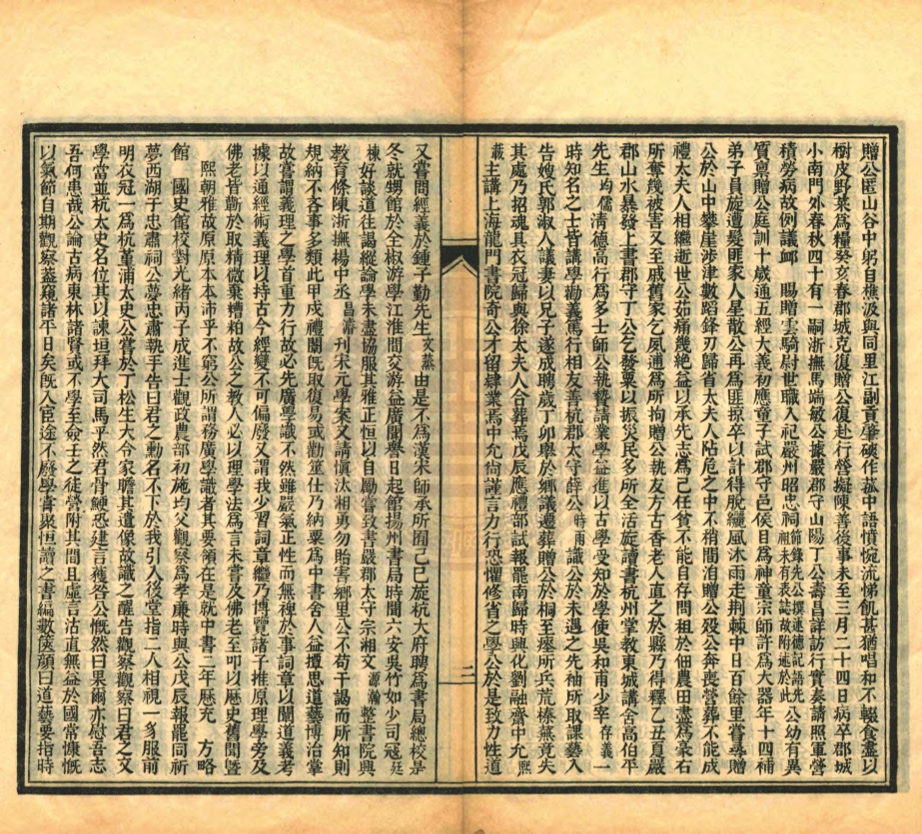 贈公匿山谷中躬自樵汲與同里江副貢肇磤作菰中語憤惋流悌飢甚猶唱和不輟食盡以
樹皮野菜為糧癸亥春郡城克復贈公復赴行營擬陳善後事未至三月二十四日病卒郡城
小南門外春秋四十有一嗣浙撫馬端敏公據嚴郡守山陽丁公壽昌詳訪行實奏請照軍營
積勞病故例議卹 賜贈雲騎尉世職入祀嚴州昭忠祠節錄先公撰述德記請先祖未有表誌故附述於此公幼有異
質禀贈公庭訓十歲通五經大義初應童子試郡守邑侯目為神童宗師許為大器年十四補
弟子員旋遭髮匪家人星散公再為匪掠卒以計得脫纏風沐雨走荆棘中日百餘里嘗尋贈
公於山中攀崖涉津數蹈鋒刃歸省太夫人阽危之中不稍間洎贈公歿公奔喪營葬不能成
禮太夫人相繼逝世公茹痛幾絶益以承先志為己任貧不能自存問租於佃農田盡為豪右
所奪幾被害又至戚舊家乞風逋為所拘贈公執友方古香老人直之於縣乃得釋乙丑夏嚴
郡山水暴發上書郡守丁公乞發粟以振災民多所全活旋讀書杭州堂教東城講舍高伯平
先生均儒清德高行為多士師公執贄請業學益進以古學受知於學使吳和甫少宰存義一
時知名之士皆講學勸義篤行相友善杭郡太守薛公時雨識公於未遇之先袖所取課藝入
告嫂氏郭淑人議妻以兄子遂成聘歲丁卯舉於鄉議遷葬贈公於桐至瘞所兵荒榛蕪竟失
其處乃招魂具衣冠歸與徐太夫人合葬焉戊辰應禮部試報罷南歸時興化劉融齋中允熙
載主講上海龍門書院奇公才留肄業焉中允尚謹言力行恐懼修省之學公於是致力性道
又嘗問經義於鍾子勤先生文烝由是不為漢宋師承所囿己巳旋杭大府聘為書局總校是
冬就甥館於全椒游學江淮間交游益廣聞譽日起館揚州書局時聞六安吳竹如少司寇廷
棟好談道往謁縱論學术盡協服其雅正恒以自勵嘗致書嚴郡太守宗湘文源瀚整書院興
教育條陳浙撫楊中丞昌濬刊宋元學案又請慎汰湘勇勿貽害鄉里公不苟干謁而所知則
規納不吝事多類此甲戌禮闈旣取復易或勸筮仕乃納粟為中書舍人益擅思道藝博洽掌
故嘗謂義理之學首重力行故必先廣學識不然雖嚴氣正性而無裨於事詞章以闡道義考
據以通經術義理以持古今經變不可偏廢又謂我少習詞章繼乃博覽諸子推原理學旁及
佛老皆蘄於取精微棄糟粕故公之教人必以理學法為言未嘗及佛老至叩以歷史舊聞曁
熙朝雅故原原本本沛乎不窮公所謂務廣學識者其要領在是就中書二年歷充 方略
館 國史館校對光緒丙子成進士觀政農部初施均父觀察為孝廉時與公戊辰報罷同祈
夢西湖于忠肅祠公夢忠肅執手告曰君之勳名不下於我引入後堂指二人相視一豸服前
明衣冠一為杭堇浦太史公嘗於丁松生大令家瞻其遺像故識之醒告觀察觀察曰君之文
學當並杭太史名位其以諫垣拜大司馬乎然君骨鯁恐建言獲咎公慨然曰果爾亦慰吾志
吾何患哉公論古病東林諸賢或不學至僉壬之徒營附其間且虛言沽直無益於國常慷慨
以氣節自期觀察蓋窺諸平日矣旣入官途不廢學嘗聚恒讀之書編數篋顔曰道藝要指時
二